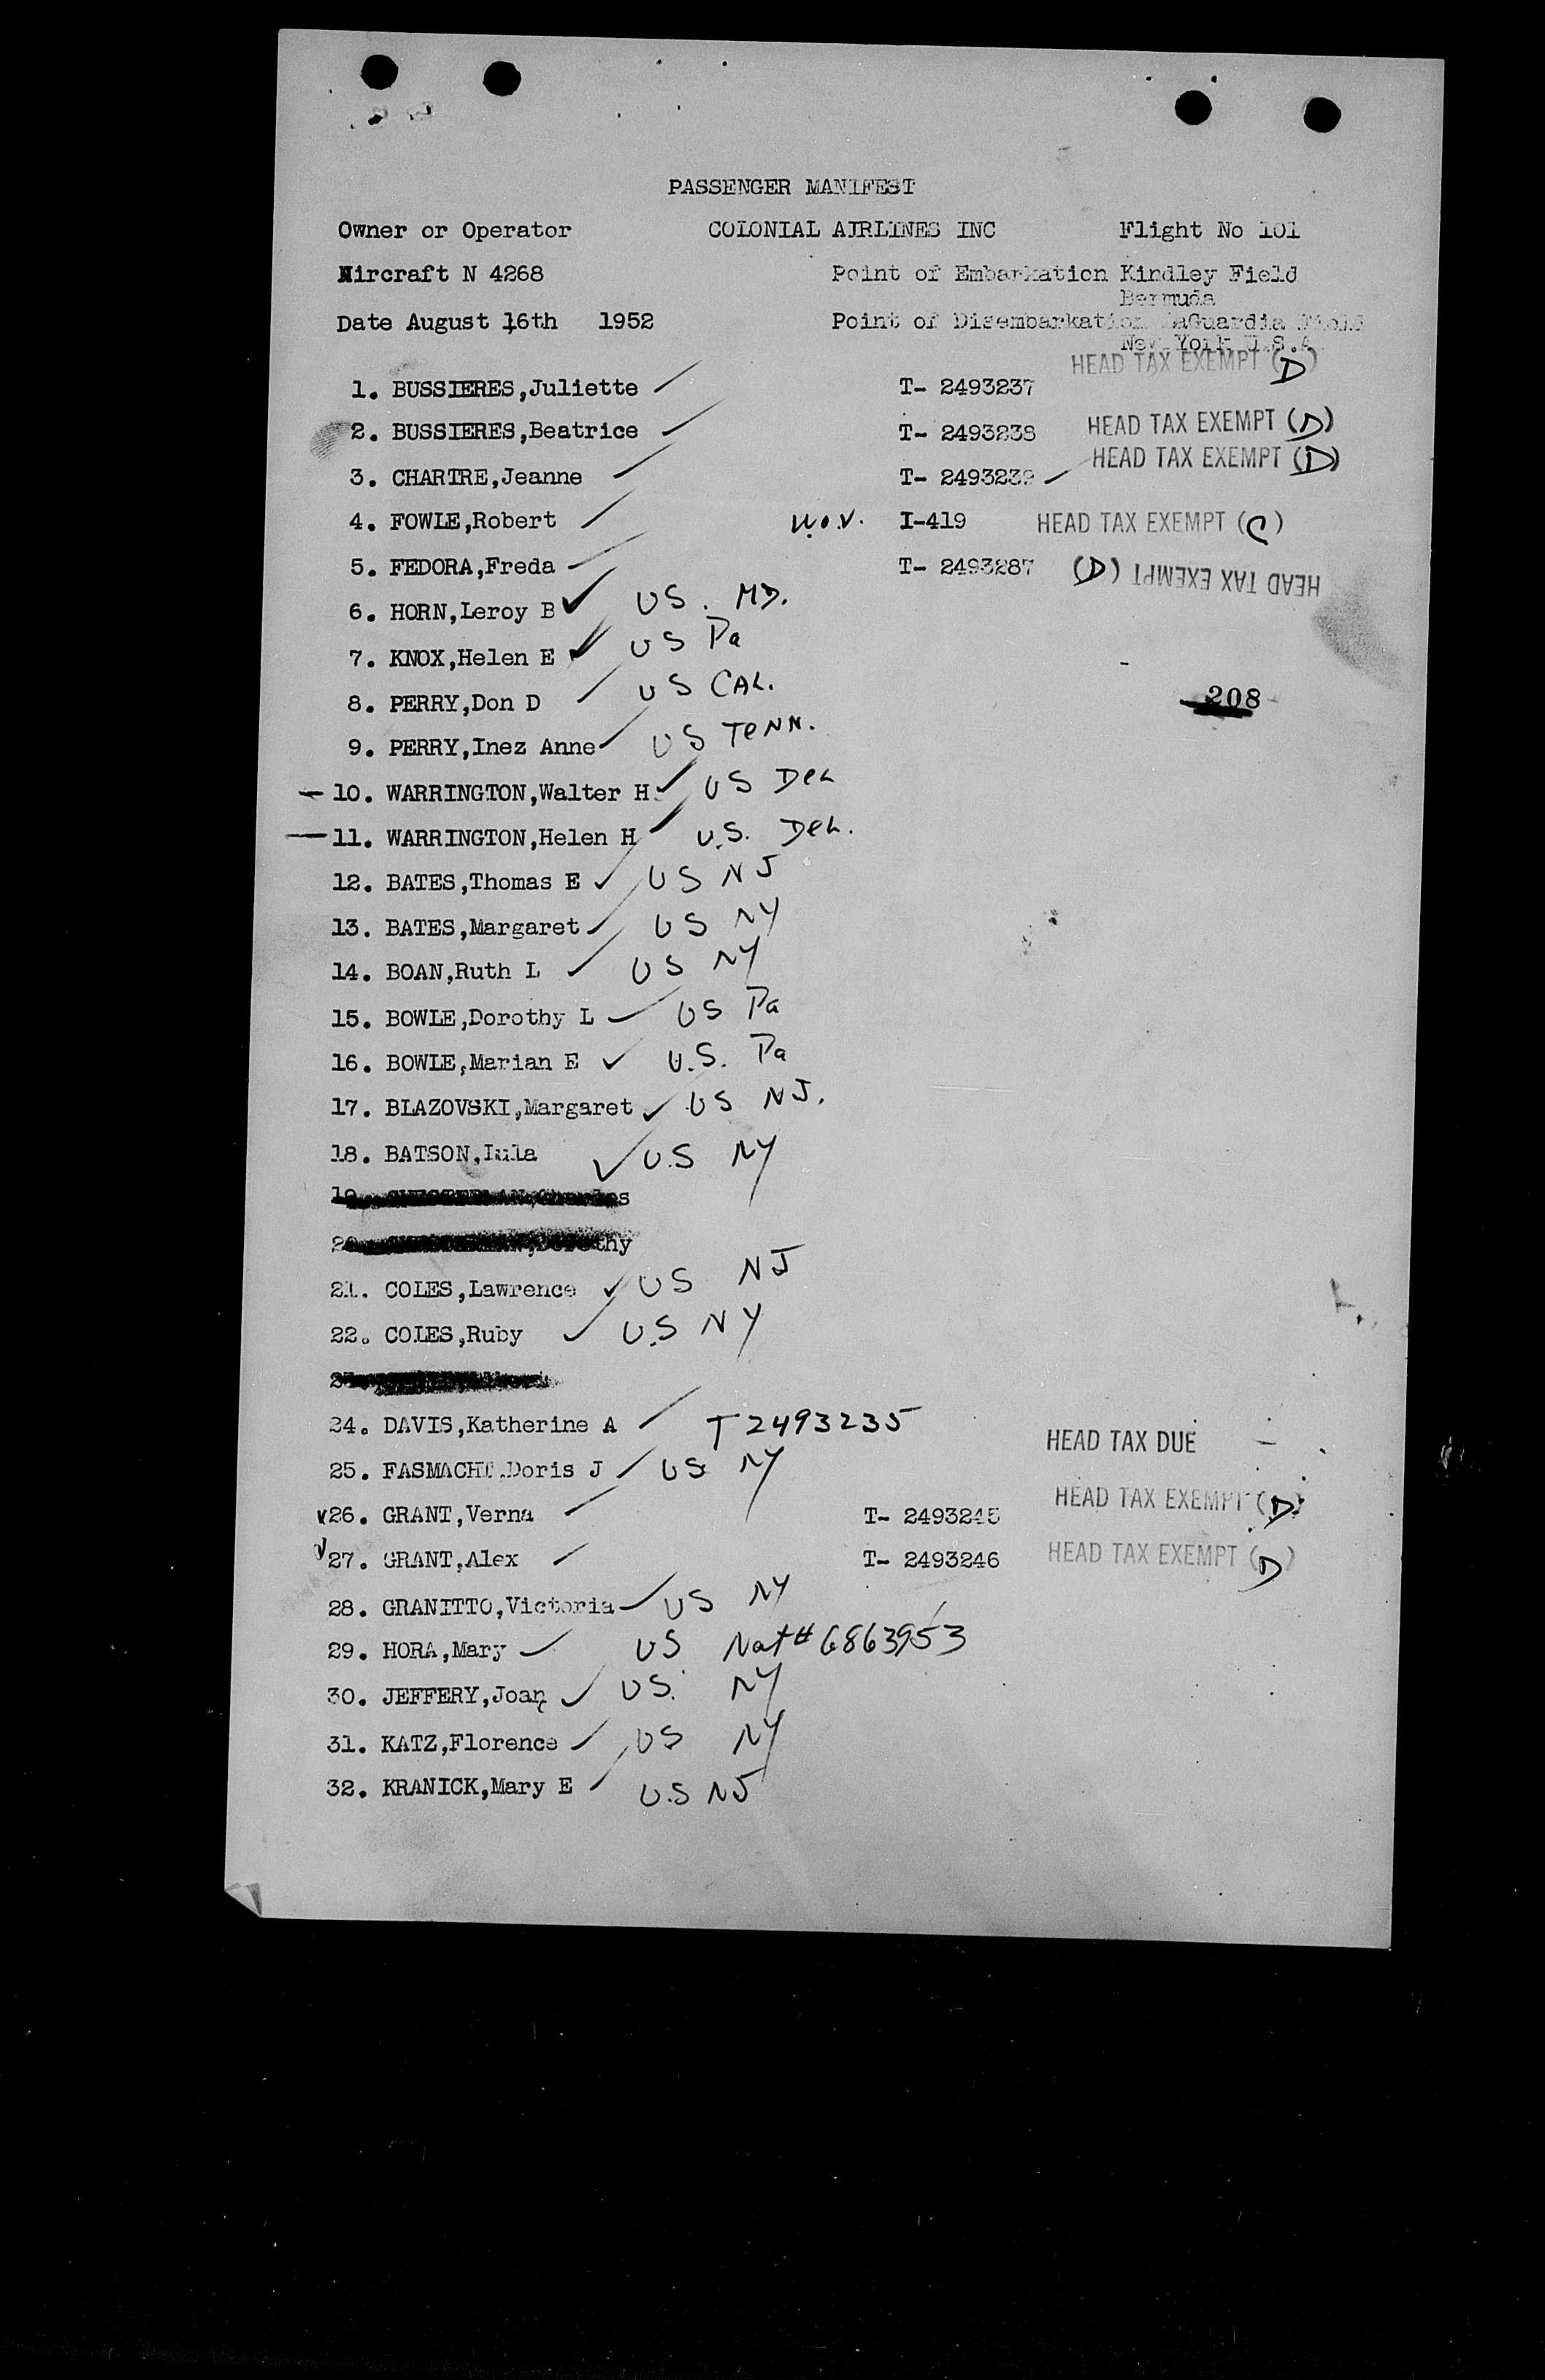 PASSENGER MANIFEST
Owner or Operator COLONIAL AIRLINES INC Flight No 101
Aircraft N 4268 Point of Embarkation Kindley Field
Bermuda
Date August 16th 1952 Point of Disembarkation LaGuardia Field
New York U.S.A.
HEAD TAX EXEMPT (D)
1. BUSSIERES,Juliette T- 2493237
2. BUSSIERES,Beatrice T- 2493238 HEAD TAX EXEMPT (D)
3. CHARTRE,Jeanne T- 2493239 HEAD TAX EXEMPT (D)
4. FOWLE,Robert W.O.V. I-419 HEAD TAX EXEMPT (C)
5. FEDORA,Freda T- 2493287 HEAD TAX EXEMPT (D)
6. HORN,Leroy B US. MD.
7. KNOX,Helen E US Pa
8. PERRY,Don D US CAL.
208
9. PERRY,Inez Anne US TeNN.
10. WARRINGTON,Walter H. US DeL
11. WARRINGTON,Helen H U.S. DeL.
12. BATES,Thomas E US NJ
13. BATES,Margaret US NY
14. BOAN,Ruth L US NY
15. BOWLE,Dorothy L US Pa
16. BOWLE,Marian E U.S. Pa
17. BLAZOVSKI,Margaret US NJ.
18. BATSON,Lula U.S NY
19.
20.
21. COLES,Lawrence US NJ
22. COLES,Ruby U.S NY
24. DAVIS,Katherine A T 2493235 HEAD TAX DUE
25. FASMACHT,Doris J US NY
26. GRANT,Verna T- 2493245 HEAD TAX EXEMPT (D)
27. GRANT,Alex T- 2493246 HEAD TAX EXEMPT (D)
28. GRANITTO,Victoria US NY
29. HORA,Mary US Nat# 6863953
30. JEFFERY,Joan US. NY
31. KATZ,Florence US NY
32. KRANICK,Mary E U.S NJ